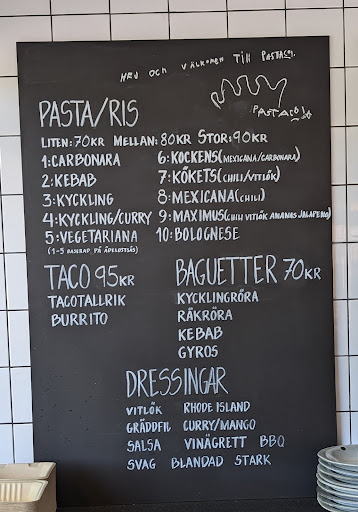 HEJ OCH VÄLKOMEN TILL PASTACO!
PASTACO
PASTA/RIS
LITEN: 70KR MELLAN: 80KR STOR: 90KR
1: CARBONARA
2: KEBAB
3: KYCKLING
4: KYCKLING/CURRY
5: VEGETARIANA
(1-5 BASERAD PÅ ÄDELOSTSÅS)
6: KOCKENS (MEXICANA/CARBONARA)
7: KÖKETS (CHILI/VITLÖK)
8: MEXICANA (CHILI)
9: MAXIMUS (CHILI VITLÖK ANANAS JALAPENO)
10: BOLOGNESE
TACO 95KR
TACOTALLRIK
BURRITO
BAGUETTER 70KR
KYCKLINGRÖRA
RÄKRÖRA
KEBAB
GYROS
DRESSINGAR
VITLÖK RHODE ISLAND
GRÄDDFIL CURRY/MANGO
SALSA VINÄGRETT BBQ
SVAG BLANDAD STARK